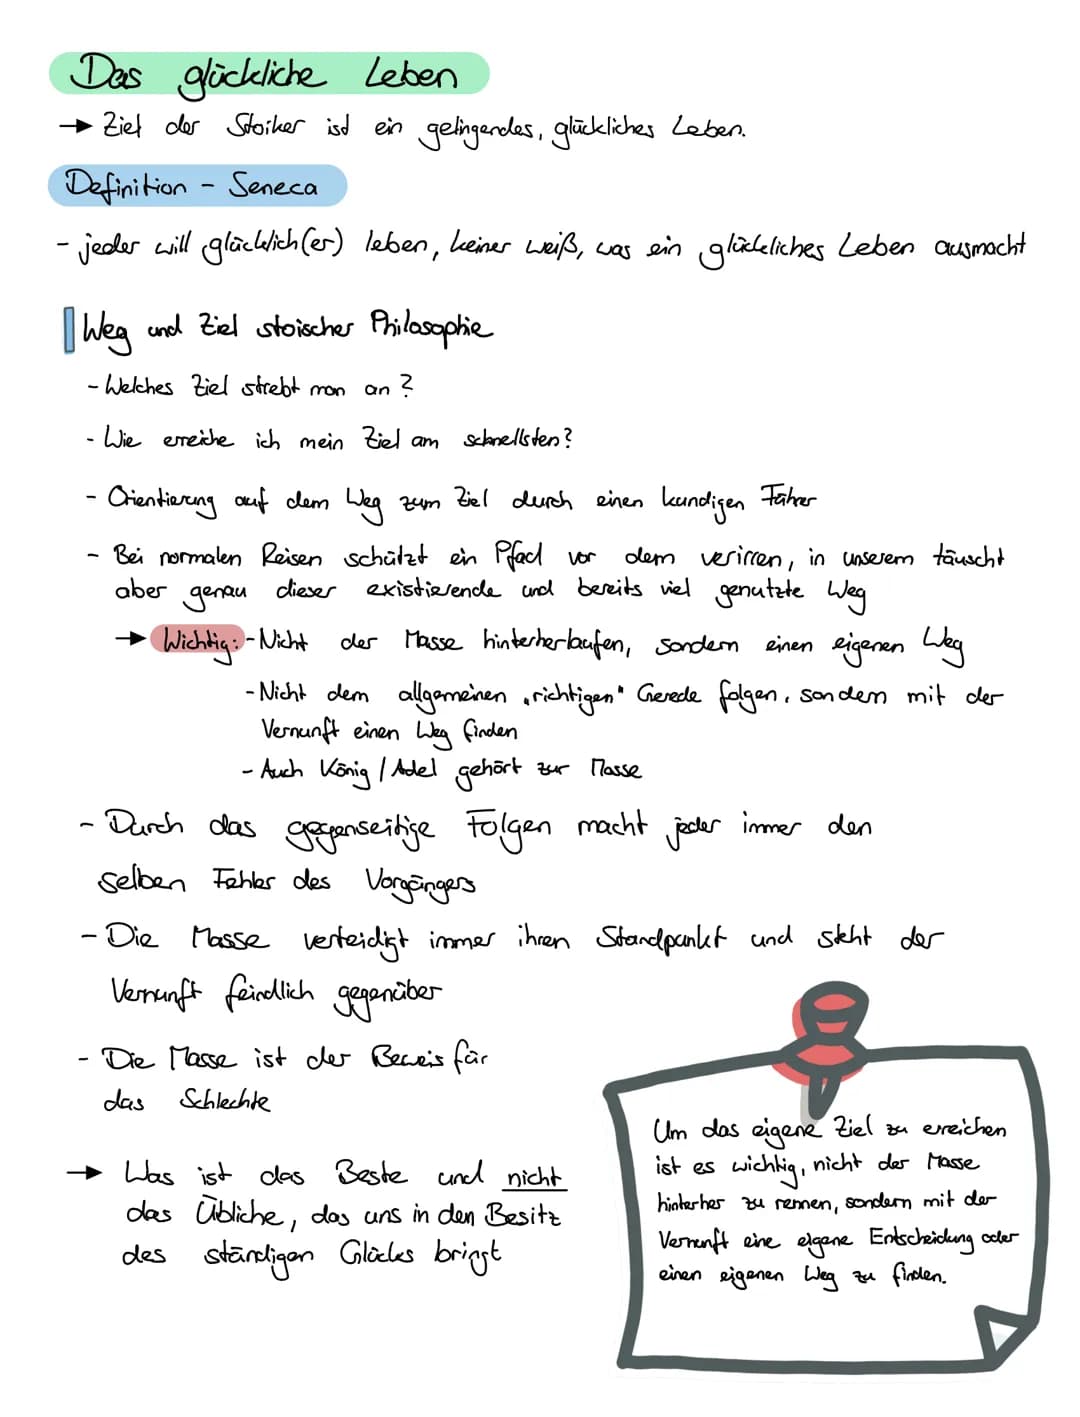 Das glückliche Leben
→ Ziel der Stoiker ist ein gelingendes, glückliches Leben.
Definition - Seneca
- jeder will glücklich(er) leben, keiner weiß, was ein glückliches Leben ausmacht
Weg und Ziel stoischer Philosophie
- Welches Ziel strebt man an?
- Wie erreiche ich mein Ziel am schnellsten?
- Orientierung auf dem Weg zum Ziel durch einen kundigen Führer
- Bei normalen Reisen schützt ein Pfad vor dem verirren, in unserem täuscht
aber genau dieser existierende und bereits viel genutzte Weg
→ Wichtig: - Nicht der Masse hinterherlaufen, sondern einen eigenen Weg
- Nicht dem allgemeinen „richtigen" Gerede folgen, sondern mit der
Vernunft einen Weg finden
- Auch König / Adel gehört zur Masse
- Durch das gegenseitige Folgen macht jeder immer den
selben Fehler des Vorgängers
- Die Masse verteidigt immer ihren Standpunkt und steht der
Vernunft feindlich gegenüber
- Die Masse ist der Beweis für
das Schlechte
→ Was ist das Beste und nicht
das Übliche, das uns in den Besitz
des ständigen Glücks bringt
Um das eigene Ziel zu erreichen
ist es wichtig, nicht der Masse
hinterher zu rennen, sondern mit der
Vernunft eine eigene Entscheidung oder
einen eigenen Weg zu finden.